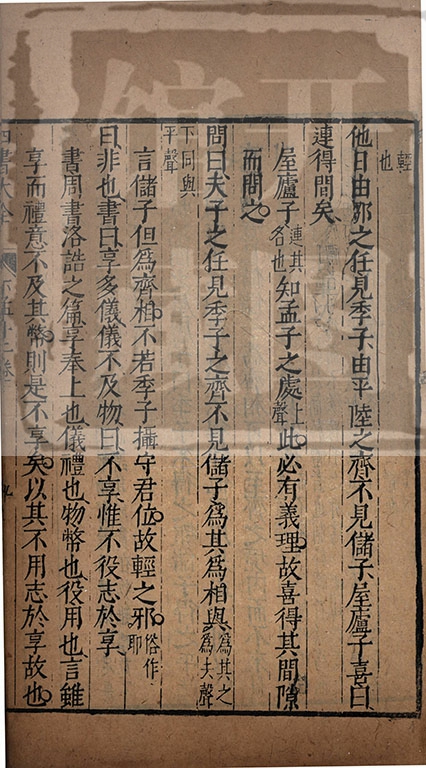 輕也
他日由鄒之任見季子由平陸之齊不見儲子屋廬子喜曰
連得間矣
屋廬子連其名也知孟子之處上聲此必有義理故喜得其間隙
而問之
問曰夫子之任見季子之齊不見儲子為其為相與為其之為去聲
下同與平聲
言儲子但為齊相不若季子攝守君位故輕之邪俗作耶
曰非也書曰享多儀儀不及物曰不享惟不役志於享
書周書洛誥之篇享奉上也儀禮也物幣也役用也言雖
享而禮意不及其幣則是不享矣以其不用志於享故也
四書大全